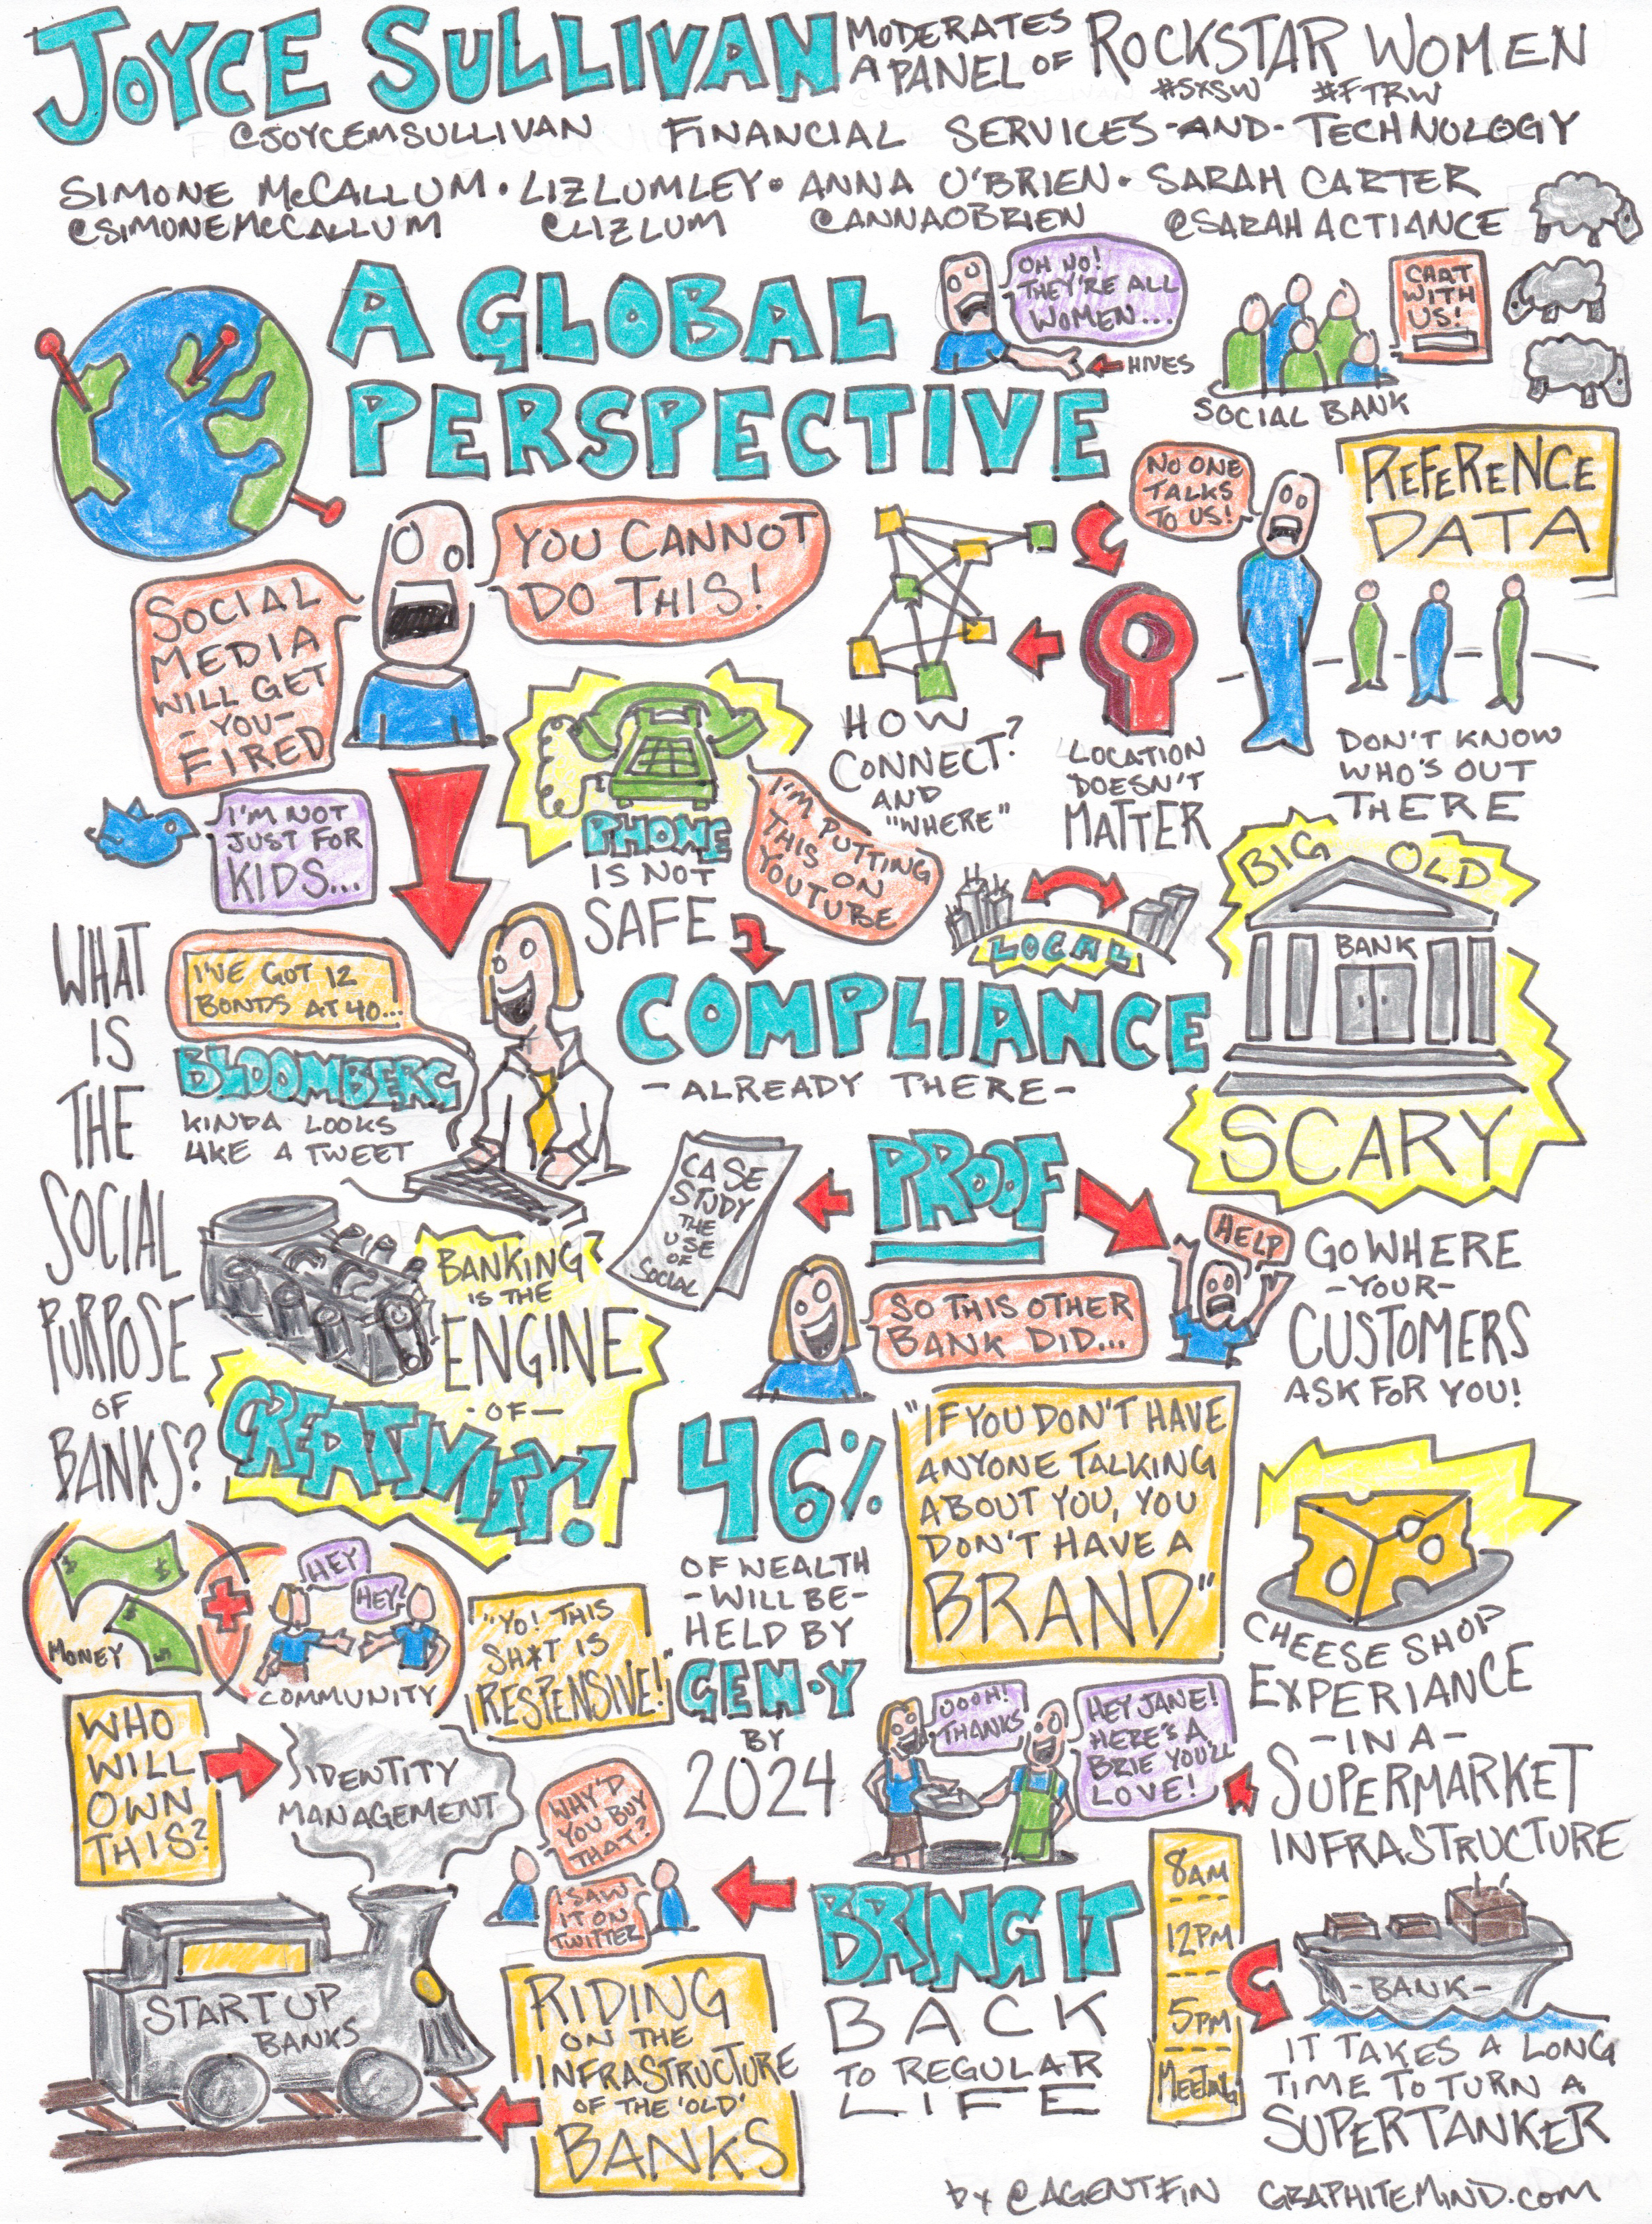 JOYCE SULLIVAN MODERATES A PANEL OF ROCKSTAR WOMEN
#SXSW #FTRW
@JOYCEMSULLIVAN FINANCIAL SERVICES-AND-TECHNOLOGY
SIMONE McCALLUM • LIZ LUMLEY • ANNA O'BRIEN • SARAH CARTER
@SIMONEMcCALLUM @LIZLUM @ANNAOBRIEN @SARAHACTIANCE
A GLOBAL
PERSPECTIVE
OH NO!
THEY'RE ALL
WOMEN...
HIVES
CHAT
WITH
US!
SOCIAL BANK
REFERENCE
DATA
NO ONE
TALKS
TO US!
YOU CANNOT
DO THIS!
SOCIAL
MEDIA
WILL GET
-YOU-
FIRED
I'M NOT
JUST FOR
KIDS...
PHONE
IS NOT
SAFE
I'M PUTTING
THIS ON
YOUTUBE
HOW
CONNECT?
AND
"WHERE"
LOCATION
DOESN'T
MATTER
DON'T KNOW
WHO'S OUT
THERE
LOCAL
BIG OLD
BANK
SCARY
COMPLIANCE
-ALREADY THERE-
WHAT
IS
THE
SOCIAL
PURPOSE
OF
BANKS?
I'VE GOT 12
BONDS AT 40...
BLOOMBERG
KINDA LOOKS
LIKE A TWEET
BANKING
IS THE
ENGINE
-OF-
CREATIVITY!
CASE
STUDY
THE
USE
OF
SOCIAL
PROOF
HELP
SO THIS OTHER
BANK DID...
GO WHERE
-YOUR-
CUSTOMERS
ASK FOR YOU!
46%
OF WEALTH
-WILL BE-
HELD BY
GEN•Y
BY
2024
"IF YOU DON'T HAVE
ANYONE TALKING
ABOUT YOU, YOU
DON'T HAVE A
BRAND"
CHEESE SHOP
EXPERIANCE
-IN A-
SUPERMARKET
INFRASTRUCTURE
$ $
$ $
MONEY
HEY
HEY
COMMUNITY
"YO! THIS
SH*T IS
RESPENSIVE!"
OOOH!
THANKS
HEY JANE!
HERE'S A
BRIE YOU'LL
LOVE!
WHO
WILL
OWN
THIS?
IDENTITY
MANAGEMENT
WHY'D
YOU BUY
THAT?
I SAW
IT ON
TWITTER
BRING IT
BACK
TO REGULAR
LIFE
8AM
12PM
5PM
MEETING
-BANK-
IT TAKES A LONG
TIME TO TURN A
SUPERTANKER
STARTUP
BANKS
RIDING
ON THE
INFRASTRUCTURE
OF THE 'OLD'
BANKS
by @AGENTFIN GRAPHITEMIND.COM